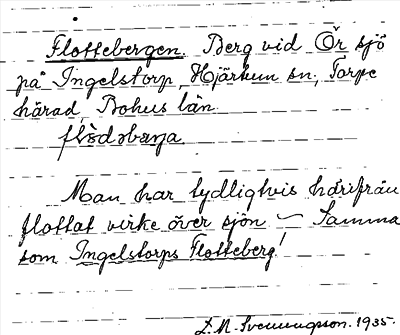 Flottebergen. Berg vid Ör sjö
på Ingelstorp, Hjärtum sn., Torpe
härad, Bohus län.
Man har tydligtvis härifrån
flottat virke över sjön — Samma
som Ingelstorps Flotteberg!
1935.